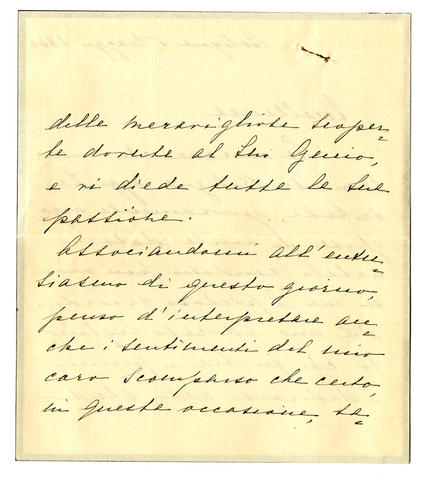 delle meravigliose scoper=
te dovute al Suo Genio,
e vi diede tutte le Sue
passione.
Associandomi all'entu=
siasmo di questo giorno,
penso d'interpretare an=
che i sentimenti del mio
caro Scomparso che certo,
in queste occasione, sa=